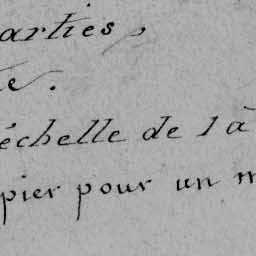 arties,
te.
échelle de 1 à
pier pour un m